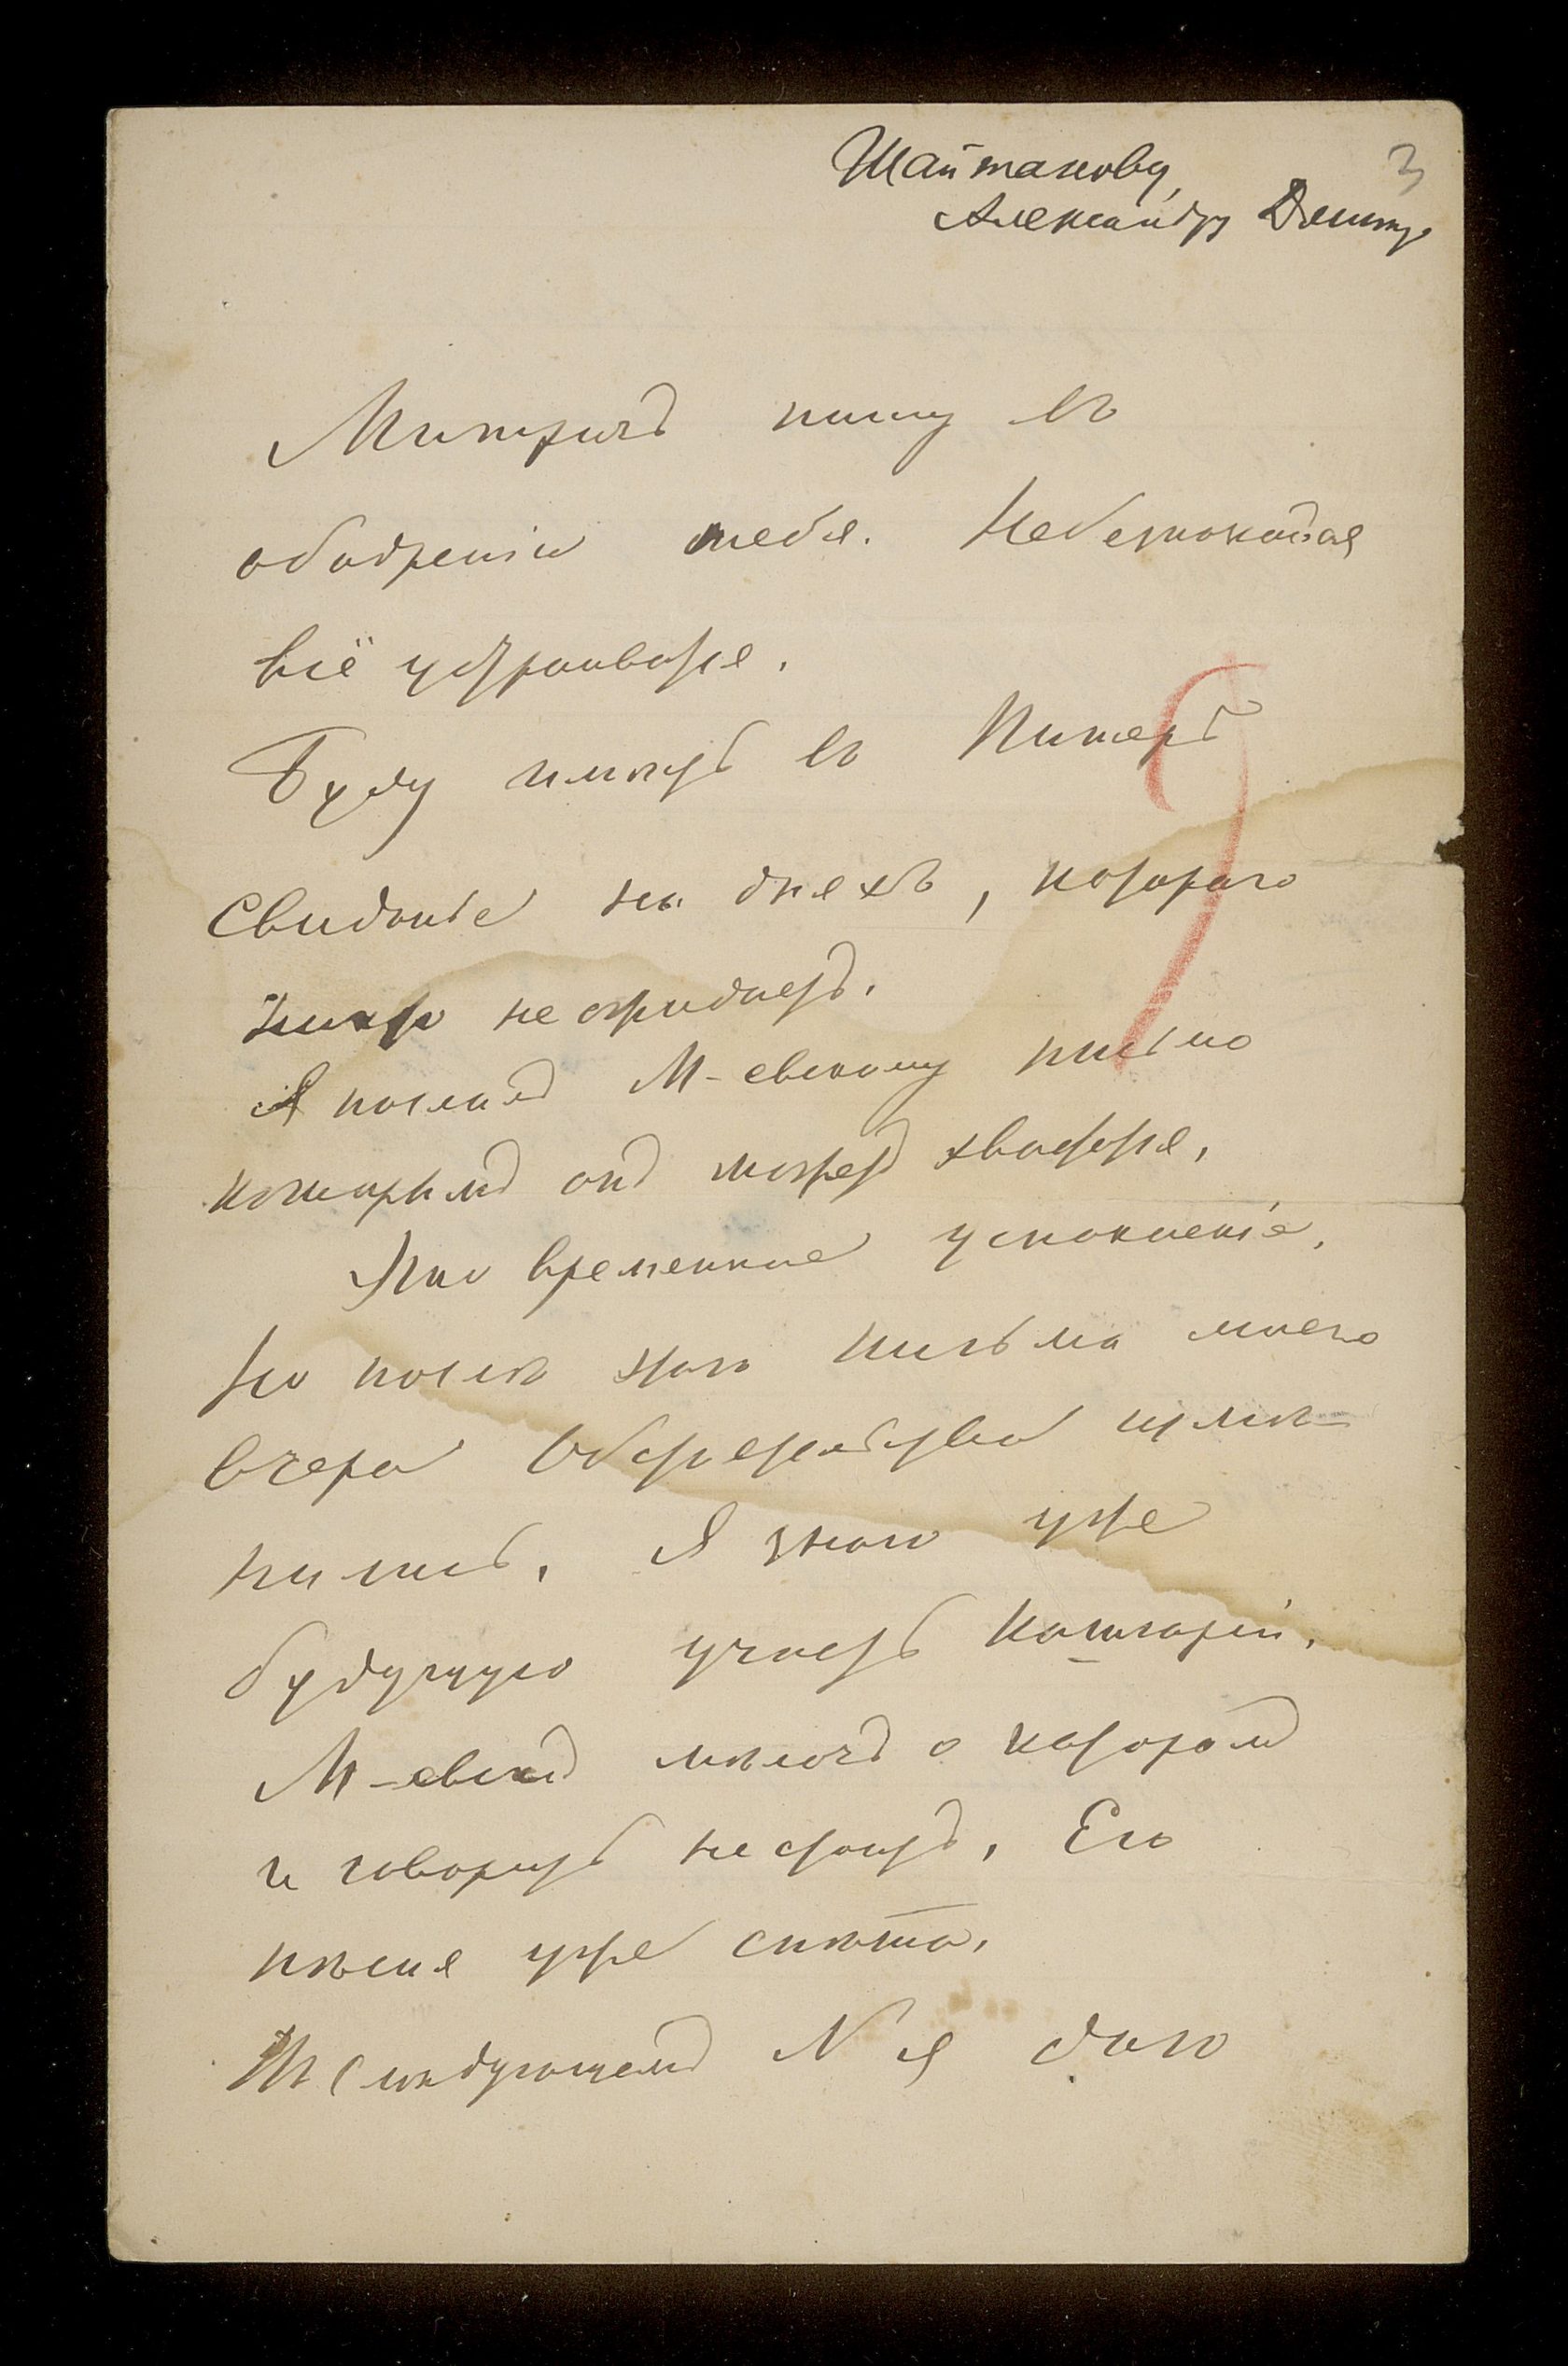 Шайтанову,
Александру Дмитр
3
Митричъ пишу въ
ободреніи тебя. Небезпокойся
всё устраивается.
Буду имѣть въ Питерѣ
Свиданіе на дняхъ, котораго
никто не ожидаетъ.
Я послалъ М-евскому письмо
которымъ онъ можетъ хвастатся,
Это временное успокоеніе,
но послѣ этого письма моего
вчера Обстоятельства измѣ-
нились. Я знаю уже
будущую участь Кашгаріи,
М-евскій мѣлочь о которомъ
и говорить не стоитъ, Его
пѣсня уже спѣта,
Въ Слѣдующемъ N я даю